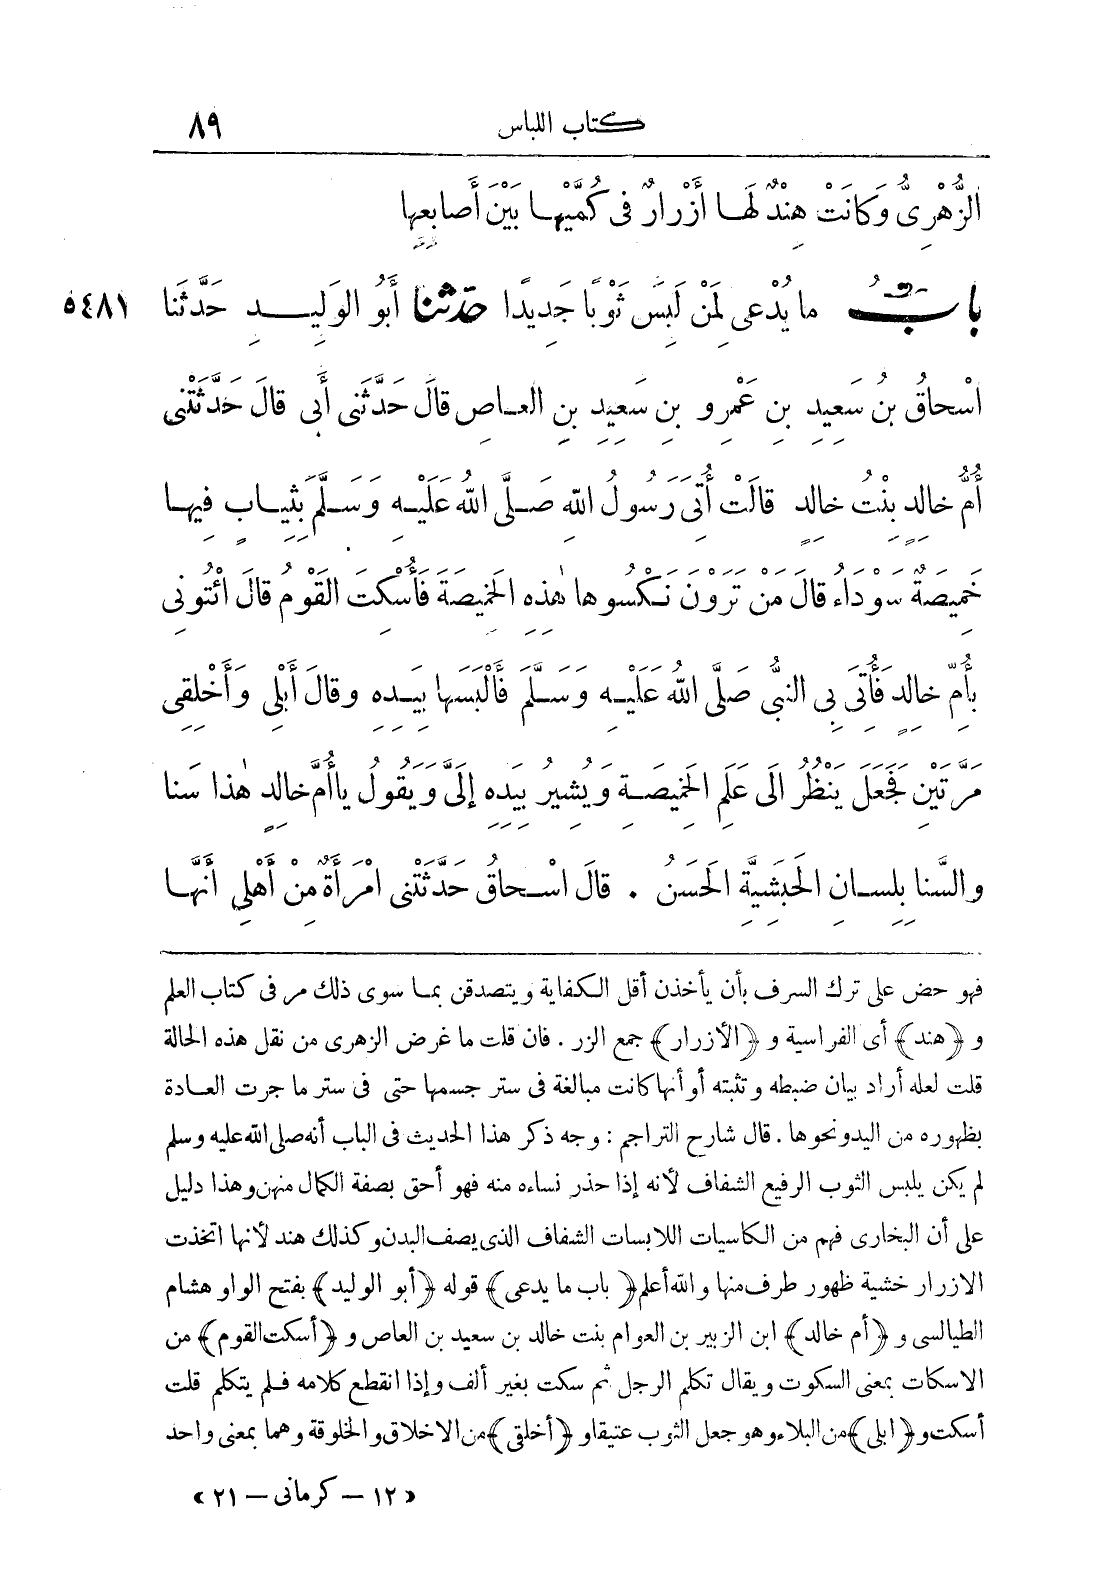 كتاب اللباس ٨٩
الزُّهْرِىُّ وَكَانَتْ هِنْدٌ لَهَا أَزْرَارٌ فى كُمَّيْهَا بَيْنَ أَصَابِعِهَا
بابُ مَا يُدْعى لِمَنْ لَبِسَ ثَوْبًا جَدِيدًا حدّثنا أَبُو الوَلِيدِ حَدَّثَنَا ٥٤٨١
إسْحاقُ بنُ سَعِيدِ بنِ عَمْرِو بنِ سَعِيدِ بنِ العاصِ قالَ حَدَّثَنى أَبى قالَ حَدَّثَتْنى
أُمُّ خالِدٍ بِنْتُ خالِدٍ قالَتْ أُتِىَ رَسُولُ اللهِ صَلَّى اللهُ عَلَيْهِ وَسَلَّمَ بِثِيابٍ فِيها
خَمِيصَةٌ سَوْدَاءُ قالَ مَنْ تَرَوْنَ نَكْسُوها هٰذِهِ الخَمِيصَةَ فَأُسْكِتَ القَوْمُ قالَ ائْتُونِى
بِأُمِّ خالِدٍ فَأُتِىَ بِى النَّبِىُّ صَلَّى اللهُ عَلَيْهِ وَسَلَّمَ فَأَلْبَسَها بِيَدِهِ وقالَ أَبْلِى وَأَخْلِقِى
مَرَّتَيْنِ فَجَعَلَ يَنْظُرُ الَى عَلَمِ الخَمِيصَةِ وَيُشِيرُ بِيَدِهِ إِلَىَّ وَيَقُولُ ياأُمَّ خالِدٍ هٰذا سَنا
والسَّنا بِلِسانِ الحَبَشِيَّةِ الحَسَنُ . قالَ اسْحاقُ حَدَّثَتْنى امْرَأَةٌ مِنْ أَهْلِى أَنَّها
فهو حض على ترك السرف بأن يأخذن أقل الكفاية ويتصدقن بما سوى ذلك مر فى كتاب العلم
و ﴿هند﴾ أى الفراسية و ﴿الأزرار﴾ جمع الزر . فان قلت ما غرض الزهرى من نقل هذه الحالة
قلت لعله أراد بيان ضبطه وتثبته أو أنها كانت مبالغة فى ستر جسمها حتى فى ستر ما جرت العادة
بظهوره من اليد ونحوها . قال شارح التراجم : وجه ذكر هذا الحديث فى الباب أنه صلى الله عليه وسلم
لم يكن يلبس الثوب الرفيع الشفاف لأنه إذا حذر نساءه منه فهو أحق بصفة الكمال منهن وهذا دليل
على أن البخارى فهم من الكاسيات اللابسات الشفاف الذى يصف البدن وكذلك هند لأنها اتخذت
الازرار خشية ظهور طرف منها والله أعلم ﴿ باب ما يدعى﴾ قوله ﴿أبو الوليد﴾ بفتح الواو هشام
الطيالسى و ﴿أم خالد﴾ ابن الزبير بن العوام بنت خالد بن سعيد بن العاص و ﴿أسكت القوم﴾ من
الاسكات بمعنى السكوت ويقال تكلم الرجل ثم سكت بغير ألف وإذا انقطع كلامه فلم يتكلم قلت
أسكت و ﴿ابلى﴾ من البلاء وهو جعل الثوب عتيقا و ﴿أخلقى﴾ من الاخلاق والخلوقة وهما بمعنى واحد
« ١٢ – كرمانى – ٢١ »